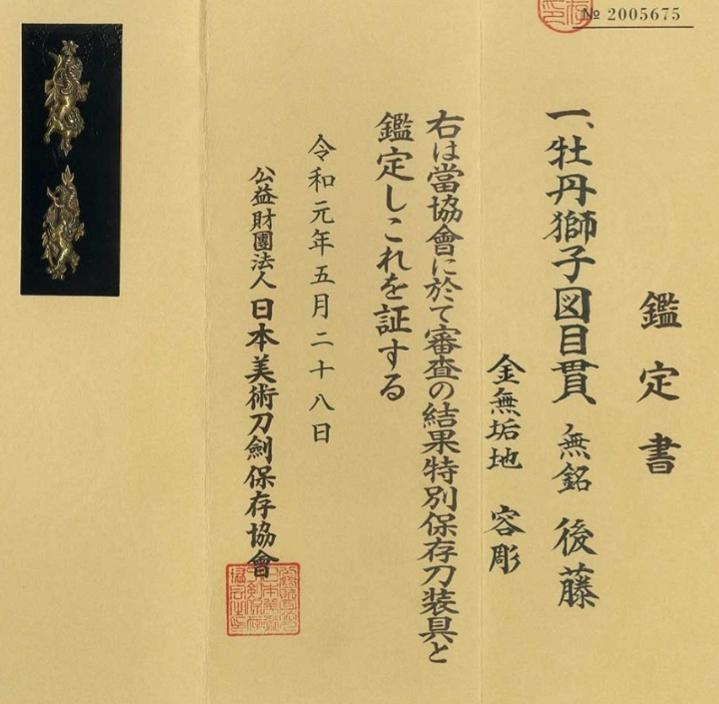 № 2005675
鑑定書
一、牡丹獅子図目貫 無銘 後藤
金無垢地 容彫
右は當協會に於て審査の結果特別保存刀装具と
鑑定しこれを証する
令和元年五月二十八日
公益財團法人 日本美術刀劍保存協會